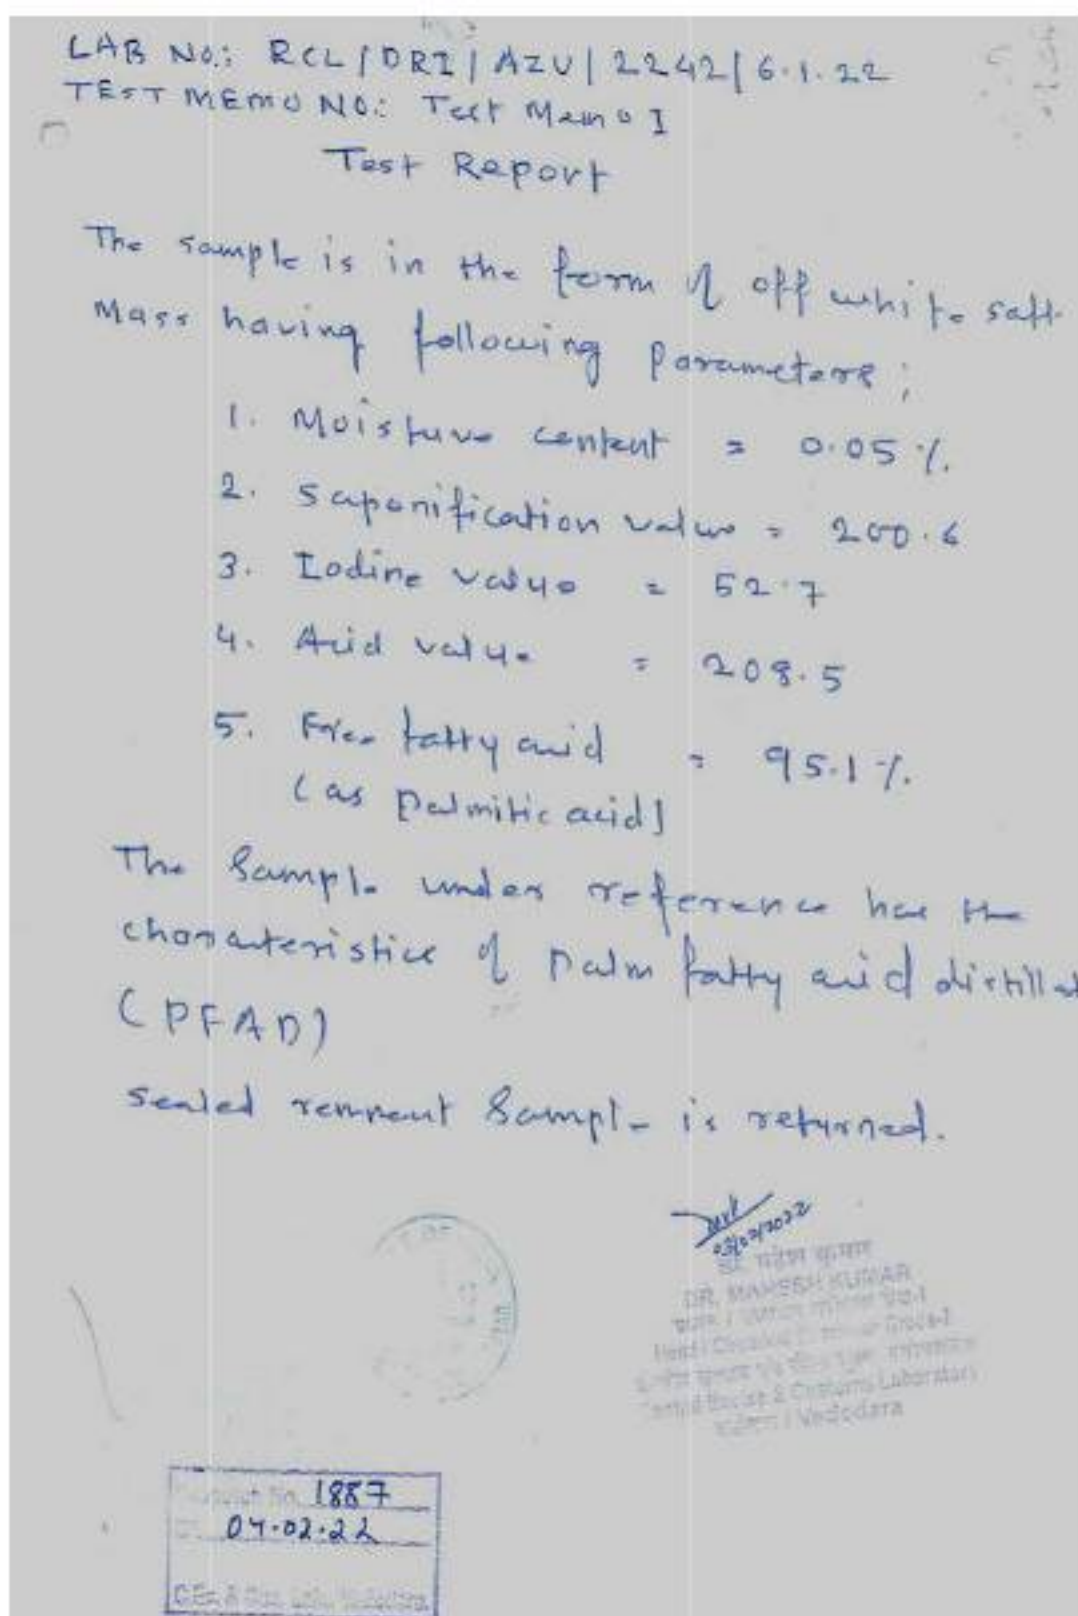 LAB NO.: RCL/DRI/AZU/2242/6.1.22
TEST MEMO NO.: Test Memo I
Test Report
The sample is in the form of off white soft
Mass having following parameters;
1. Moisture content = 0.05 %.
2. Saponification value = 200.6
3. Iodine value = 52.7
4. Acid value = 208.5
5. Free fatty acid = 95.1 %.
(as Palmitic acid)
The Sample under reference has the
characteristics of Palm fatty acid distillat
(PFAD)
Sealed remnant Sample is returned.
03/02/2022
डॉ. महेश कुमार
DR. MAHESH KUMAR
Grade-I
Central Excise & Customs Laboratory
/ Vadodara
No. 1887
04.02.22